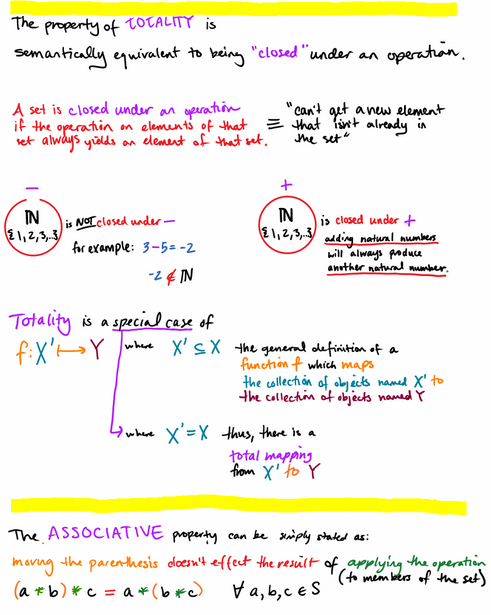 The property of TOTALITY is
semantically equivalent to being "closed" under an operation.
A set is closed under an operation
if the operation on elements of that
set always yields an element of that set.
≡
"can't get a new element
that isn't already in
the set"
−
ℕ
{1,2,3,..}
is NOT closed under −
for example: 3−5=-2
-2 ∉ ℕ
+
ℕ
{1,2,3,..}
is closed under +
adding natural numbers
will always produce
another natural number.
Totality is a special case of
f: X' ↦ Y where X' ⊆ X
the general definition of a
function f which maps
the collection of objects named X' to
the collection of objects named Y
where X' = X thus, there is a
total mapping
from X' to Y
The ASSOCIATIVE property can be simply stated as:
moving the parenthesis doesn't effect the result of applying the operation
(to members of the set)
(a * b) * c = a * (b * c) ∀ a,b,c ∈ S